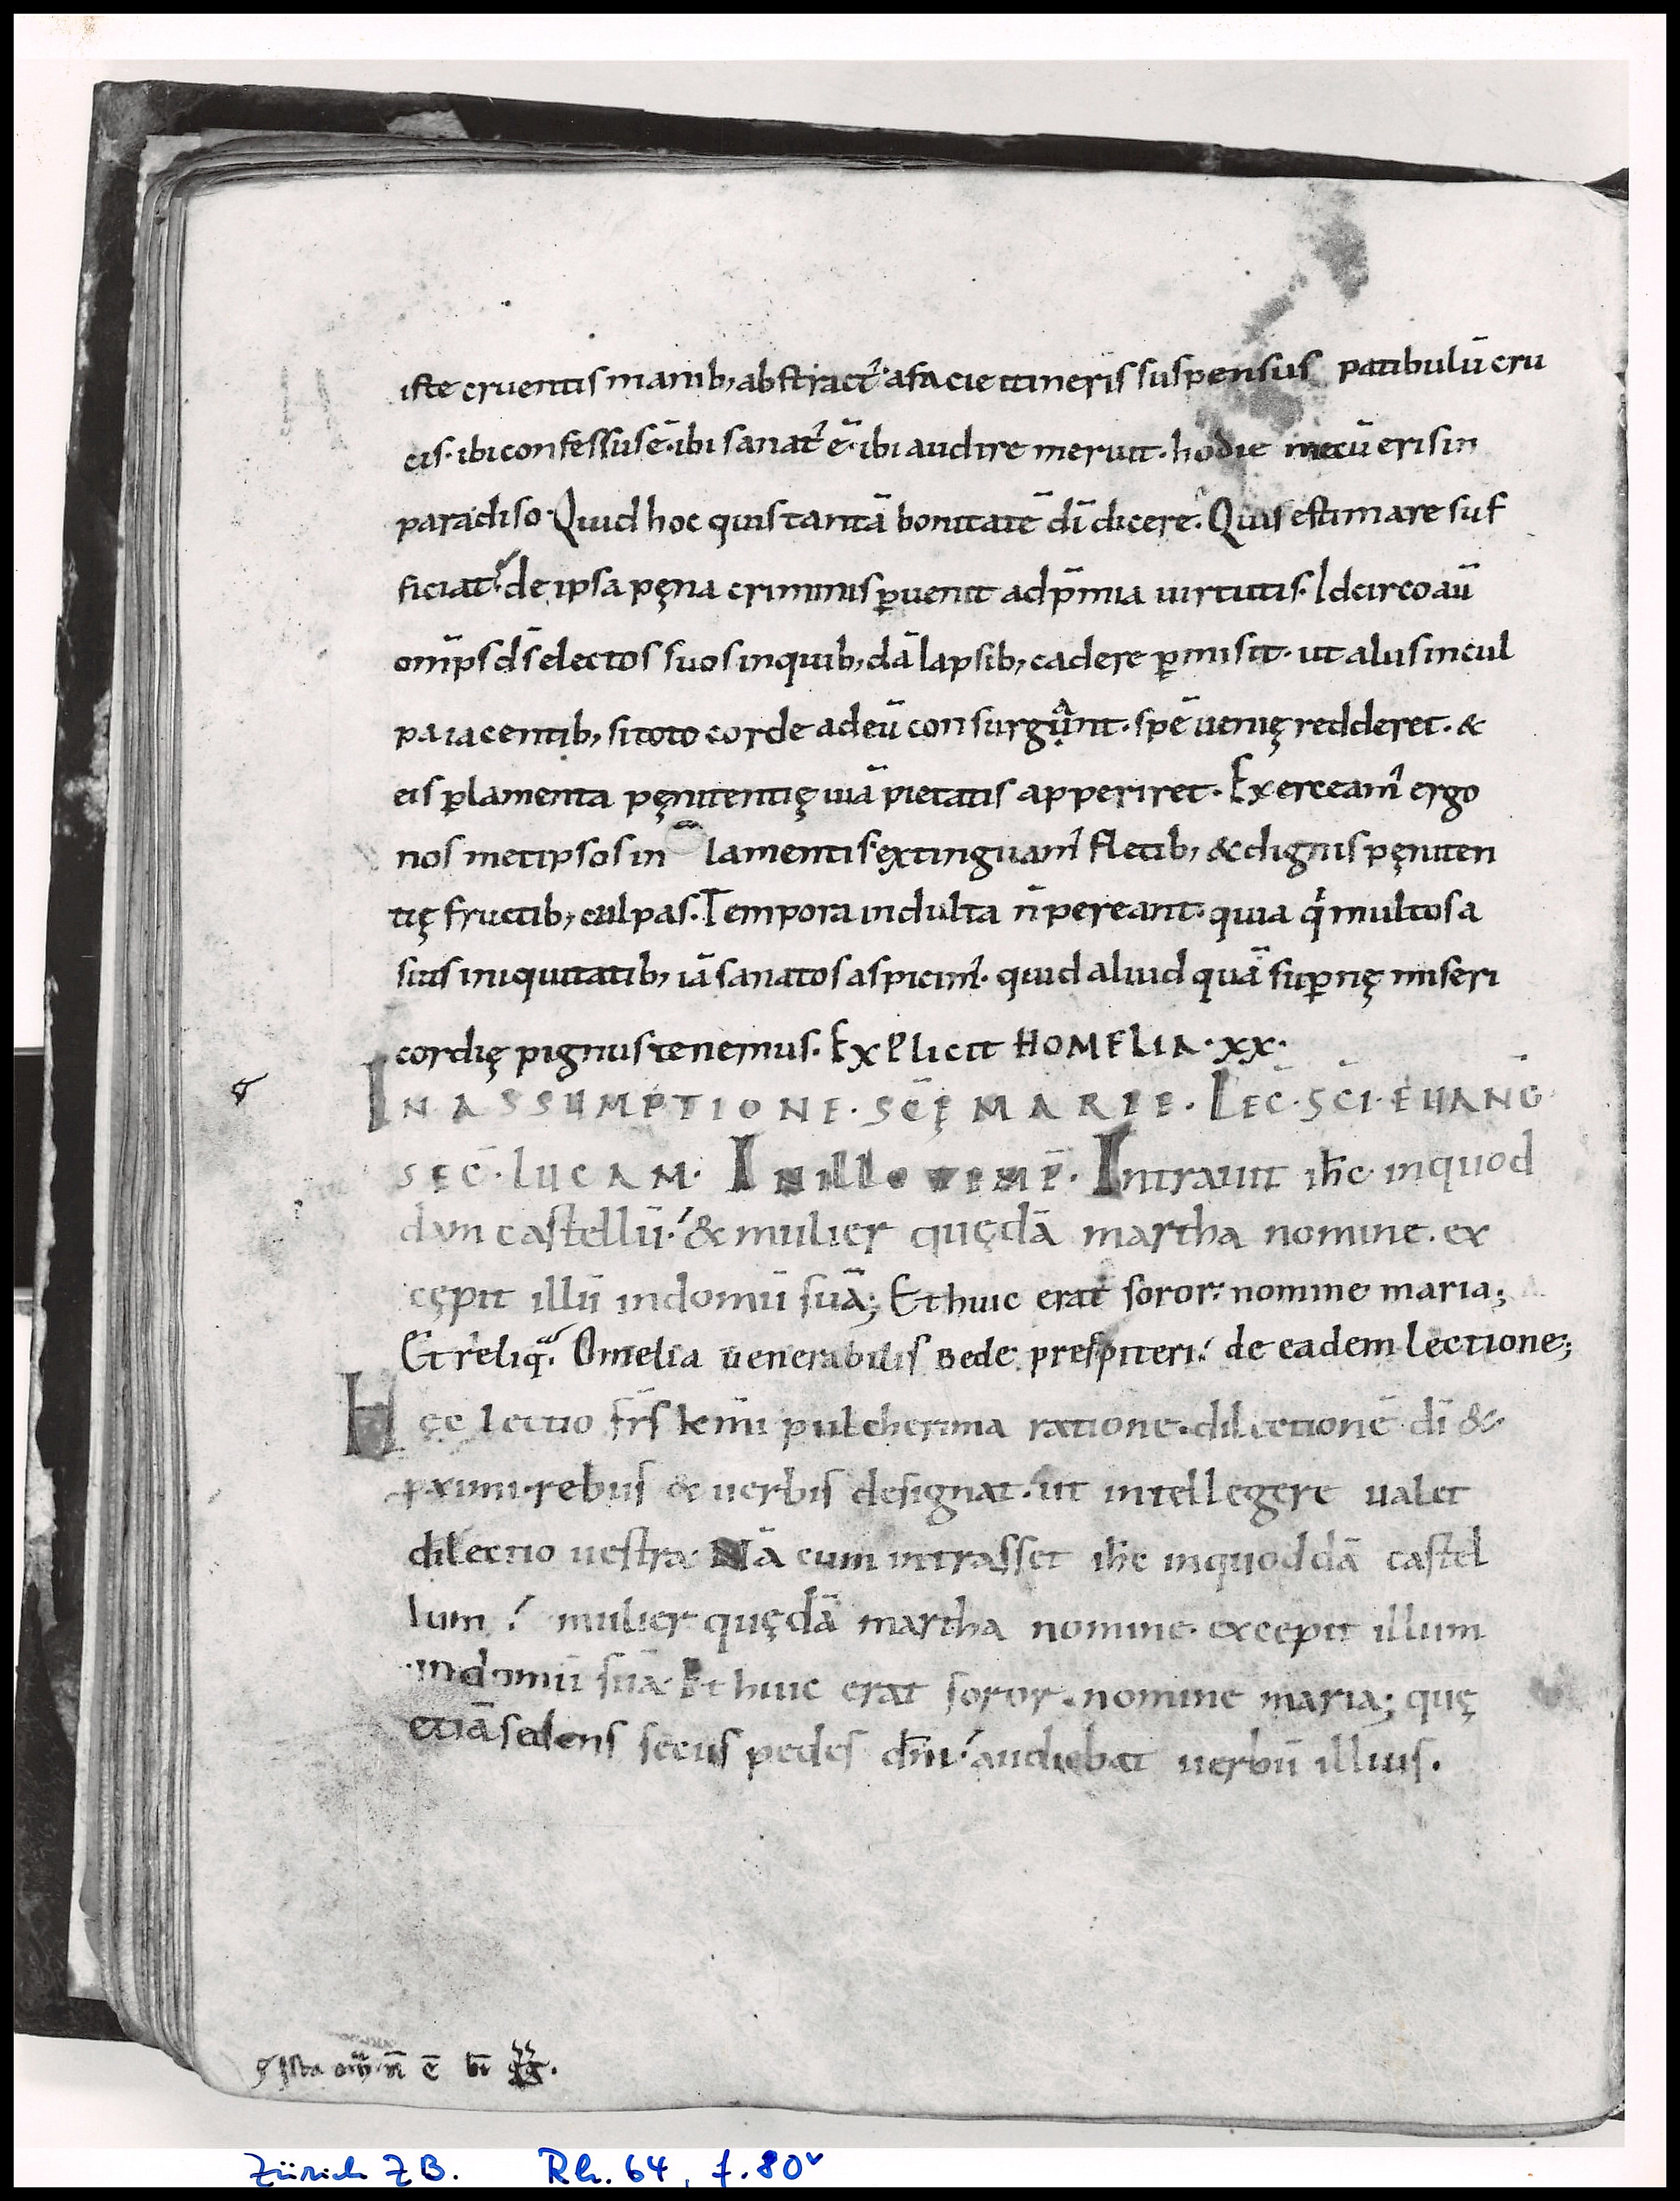 iste cruentis manib; abstract᾿ afacie itineris suspensus patibulū cru
cis· ibi confessus ē· ibi sanat᾿ ē· ibi audire meruit· hodie mecū eris in
paradiso· Quid hoc quis tantā bonitatē dī dicere· Quis estimare suf
ficiat· de ipsa pęna criminis ꝑuenit ad p̄mia uirtutis· Idcirco aū
om̄ps d̄s electos suos in quib; dā lapsib; cadere ꝑmisit· ut aliis in cul
pa iacentib; si toto corde ad eū consurgunt· spē uenię redderet· &
eis ꝑ lamenta pęnitentię uiā pietatis apperiret· Exerceam᾿ ergo
nos metipsos in lamentis· extinguam᾿ fletib; & dignis pęniten
tię fructib; culpas· Tempora indulta n̄ pereant· quia q᾿ multos a
suis iniquitatib; iā sanatos aspicim᾿· quid aliud quā suꝑnę miseri
cordię pignus tenemus· Explicit HOMELIA· XX·
IN ASSUMPTIONE· SC̄Ę MARIE· LEC̄· SC̄I· EUANḠ
SEC̄· LUCAM· IN ILLO TEMP̄· Intrauit ih̄c in quod
dam castellū· & mulier quędā martha nomine· ex
cępit illū in domū suā; Et huic erat soror· nomine maria;
Et reliq· Omelia uenerabilis Bede presṗiteri· de eadem lectione;
Hęc lectio fr̄s km̄i pulcherima ratione· dilectionē dī &
ꝓximi· rebus & uerbis designat· ut intellegere ualet
dilectio uestra· Nā cum intrasset ih̄c in quoddā castel
lum· mulier quędā martha nomine· excepit illum
in domū suā· Et huic erat soror· nomine maria; quę
etiā sedens secus pedes dn̄i· audiebat uerbū illius·
Ista n̄ ē
Zürich ZB. Rh. 64, f. 80v